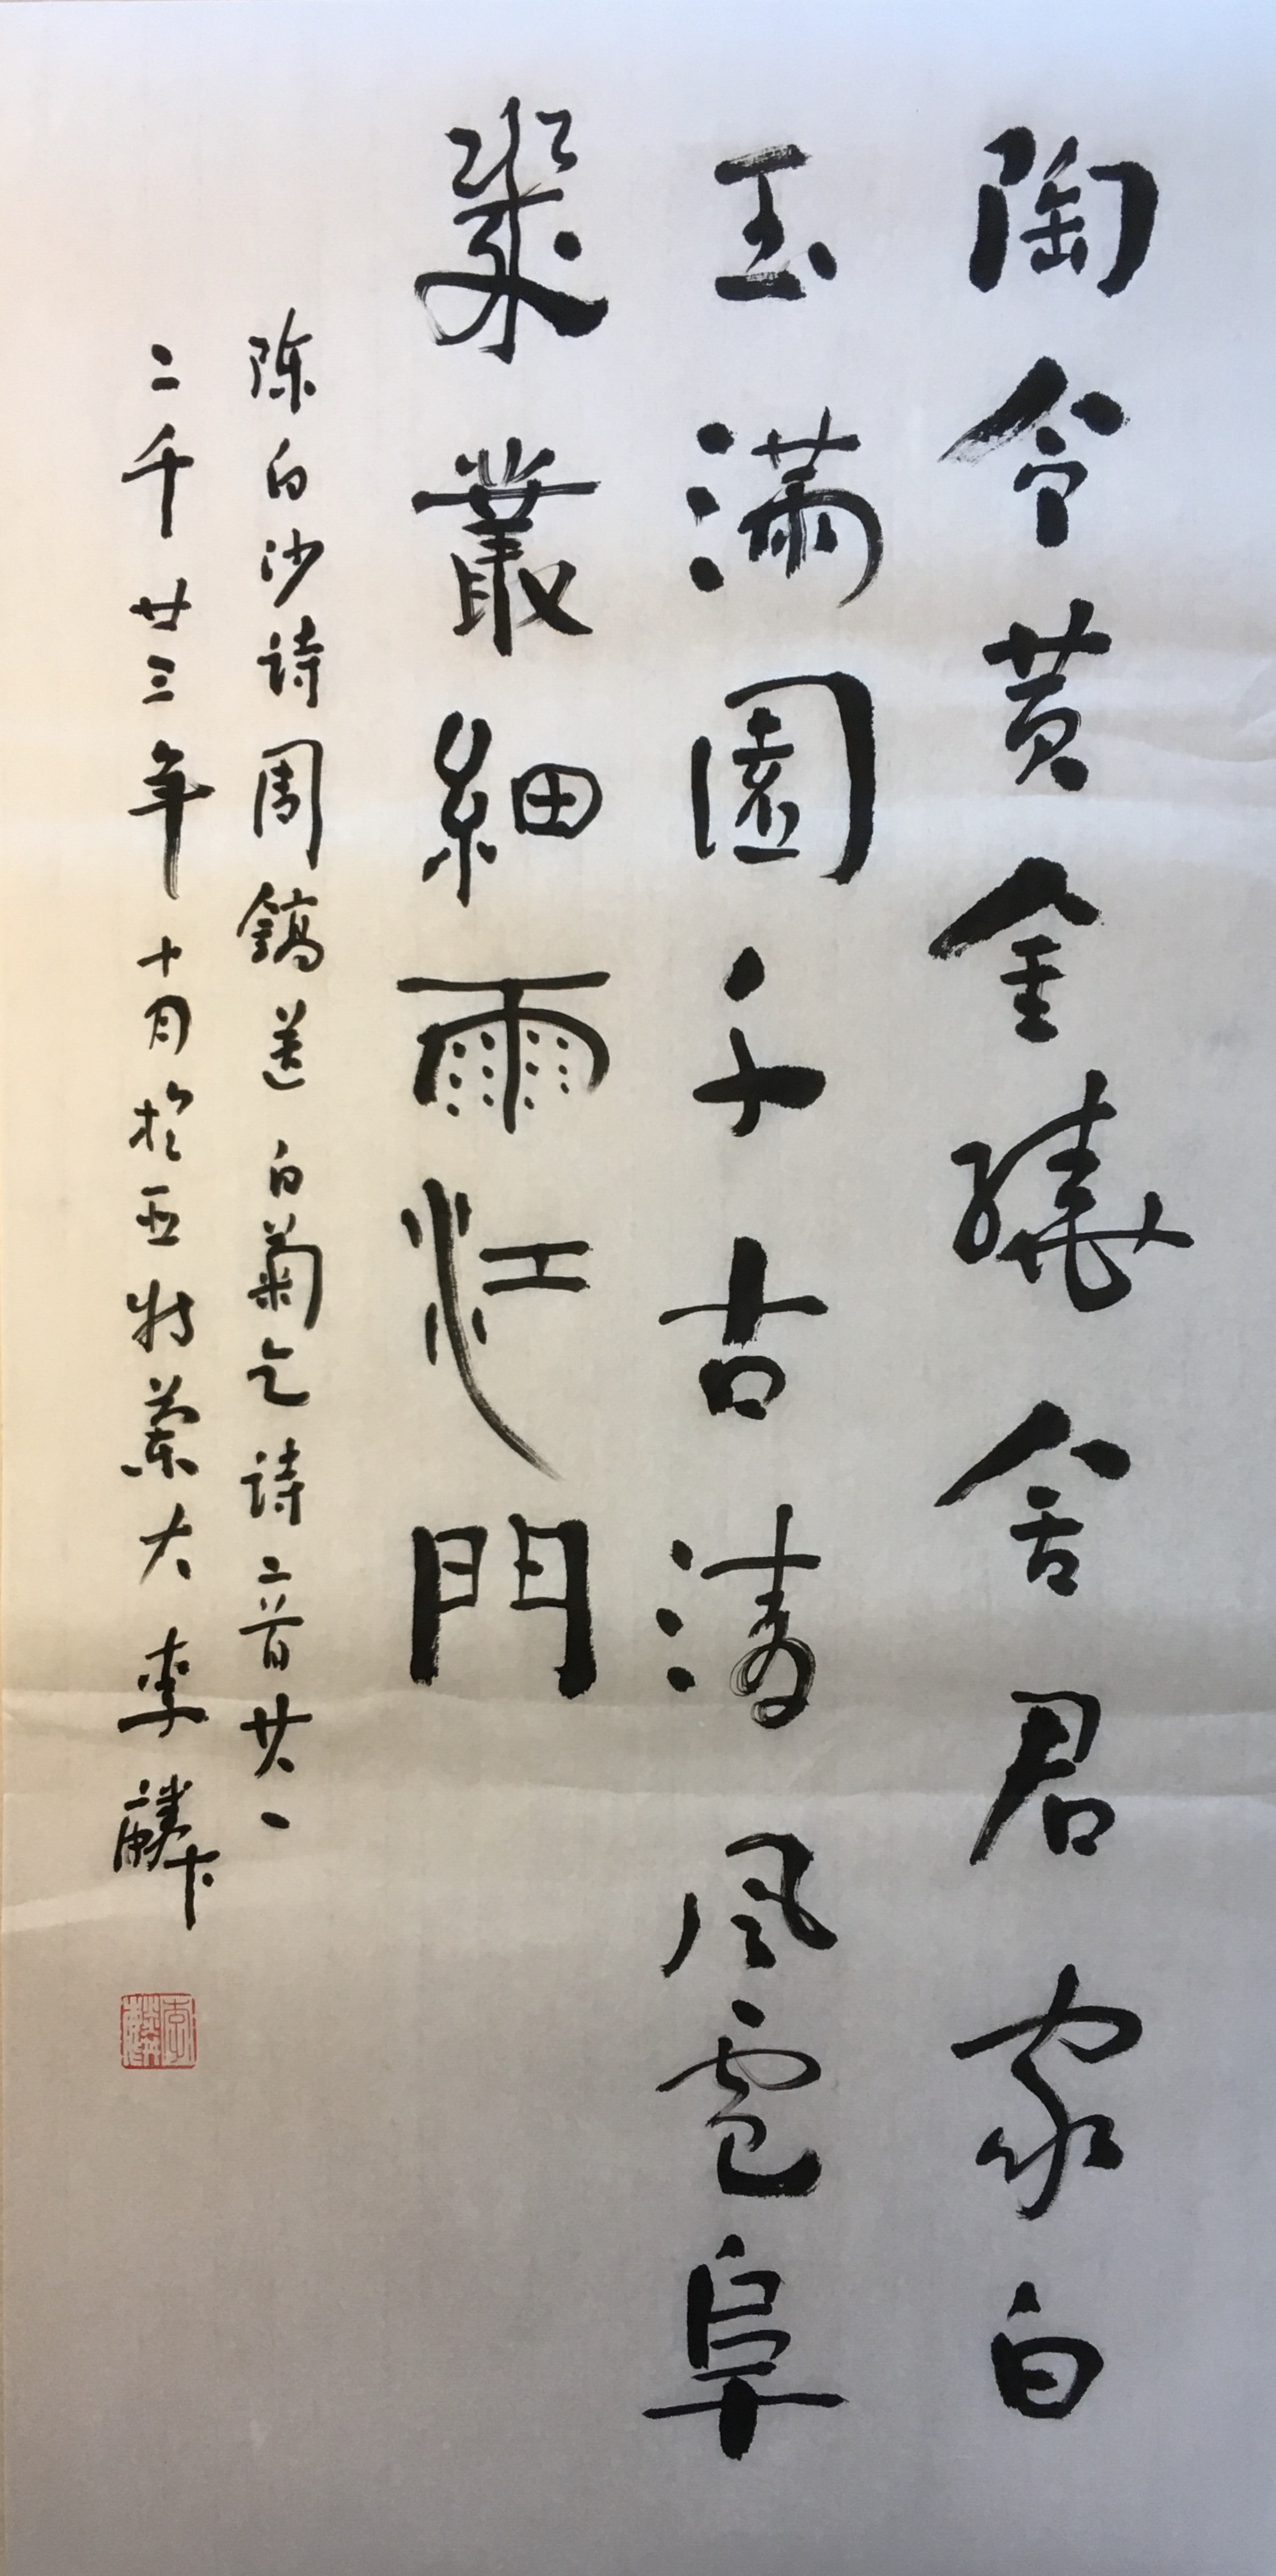 陶令黄金繞舍君家白
玉滿園千古清風阜
幾叢細雨江門
陈白沙诗周鎬送白菊乞诗二首其一
二千廿三年十月於亚特蘭大李麟